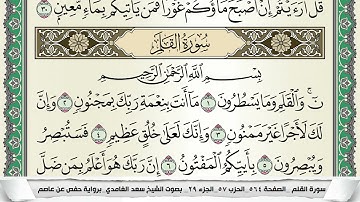 قُلْ أَرَءَيْتُمْ إِنْ أَصْبَحَ مَاؤُكُمْ غَوْرًا فَمَن يَأْتِيكُم بِمَاءٍ مَّعِينٍ ٣٠
سُورَةُ القَلَمِ
بِسْمِ اللَّهِ الرَّحْمَٰنِ الرَّحِيمِ
نٓ ۚ وَالْقَلَمِ وَمَا يَسْطُرُونَ ١ مَا أَنتَ بِنِعْمَةِ رَبِّكَ بِمَجْنُونٍ ٢ وَإِنَّ
لَكَ لَأَجْرًا غَيْرَ مَمْنُونٍ ٣ وَإِنَّكَ لَعَلَىٰ خُلُقٍ عَظِيمٍ ٤ فَسَتُبْصِرُ
وَيُبْصِرُونَ ٥ بِأَييِّكُمُ الْمَفْتُونُ ٦ إِنَّ رَبَّكَ هُوَ أَعْلَمُ بِمَن ضَلَّ
سورة القلم . الصفحة ٥٦٤ . الحزب ٥٧ . الجزء ٢٩ . بصوت الشيخ سعد الغامدي . برواية حفص عن عاصم